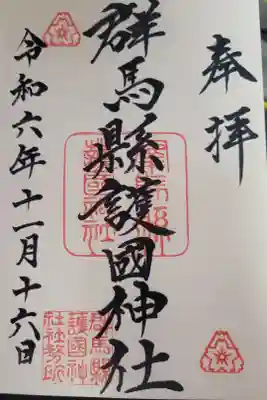 奉拝
群馬縣護國神社
令和六年十一月十六日
群馬縣
護國神
社社務所